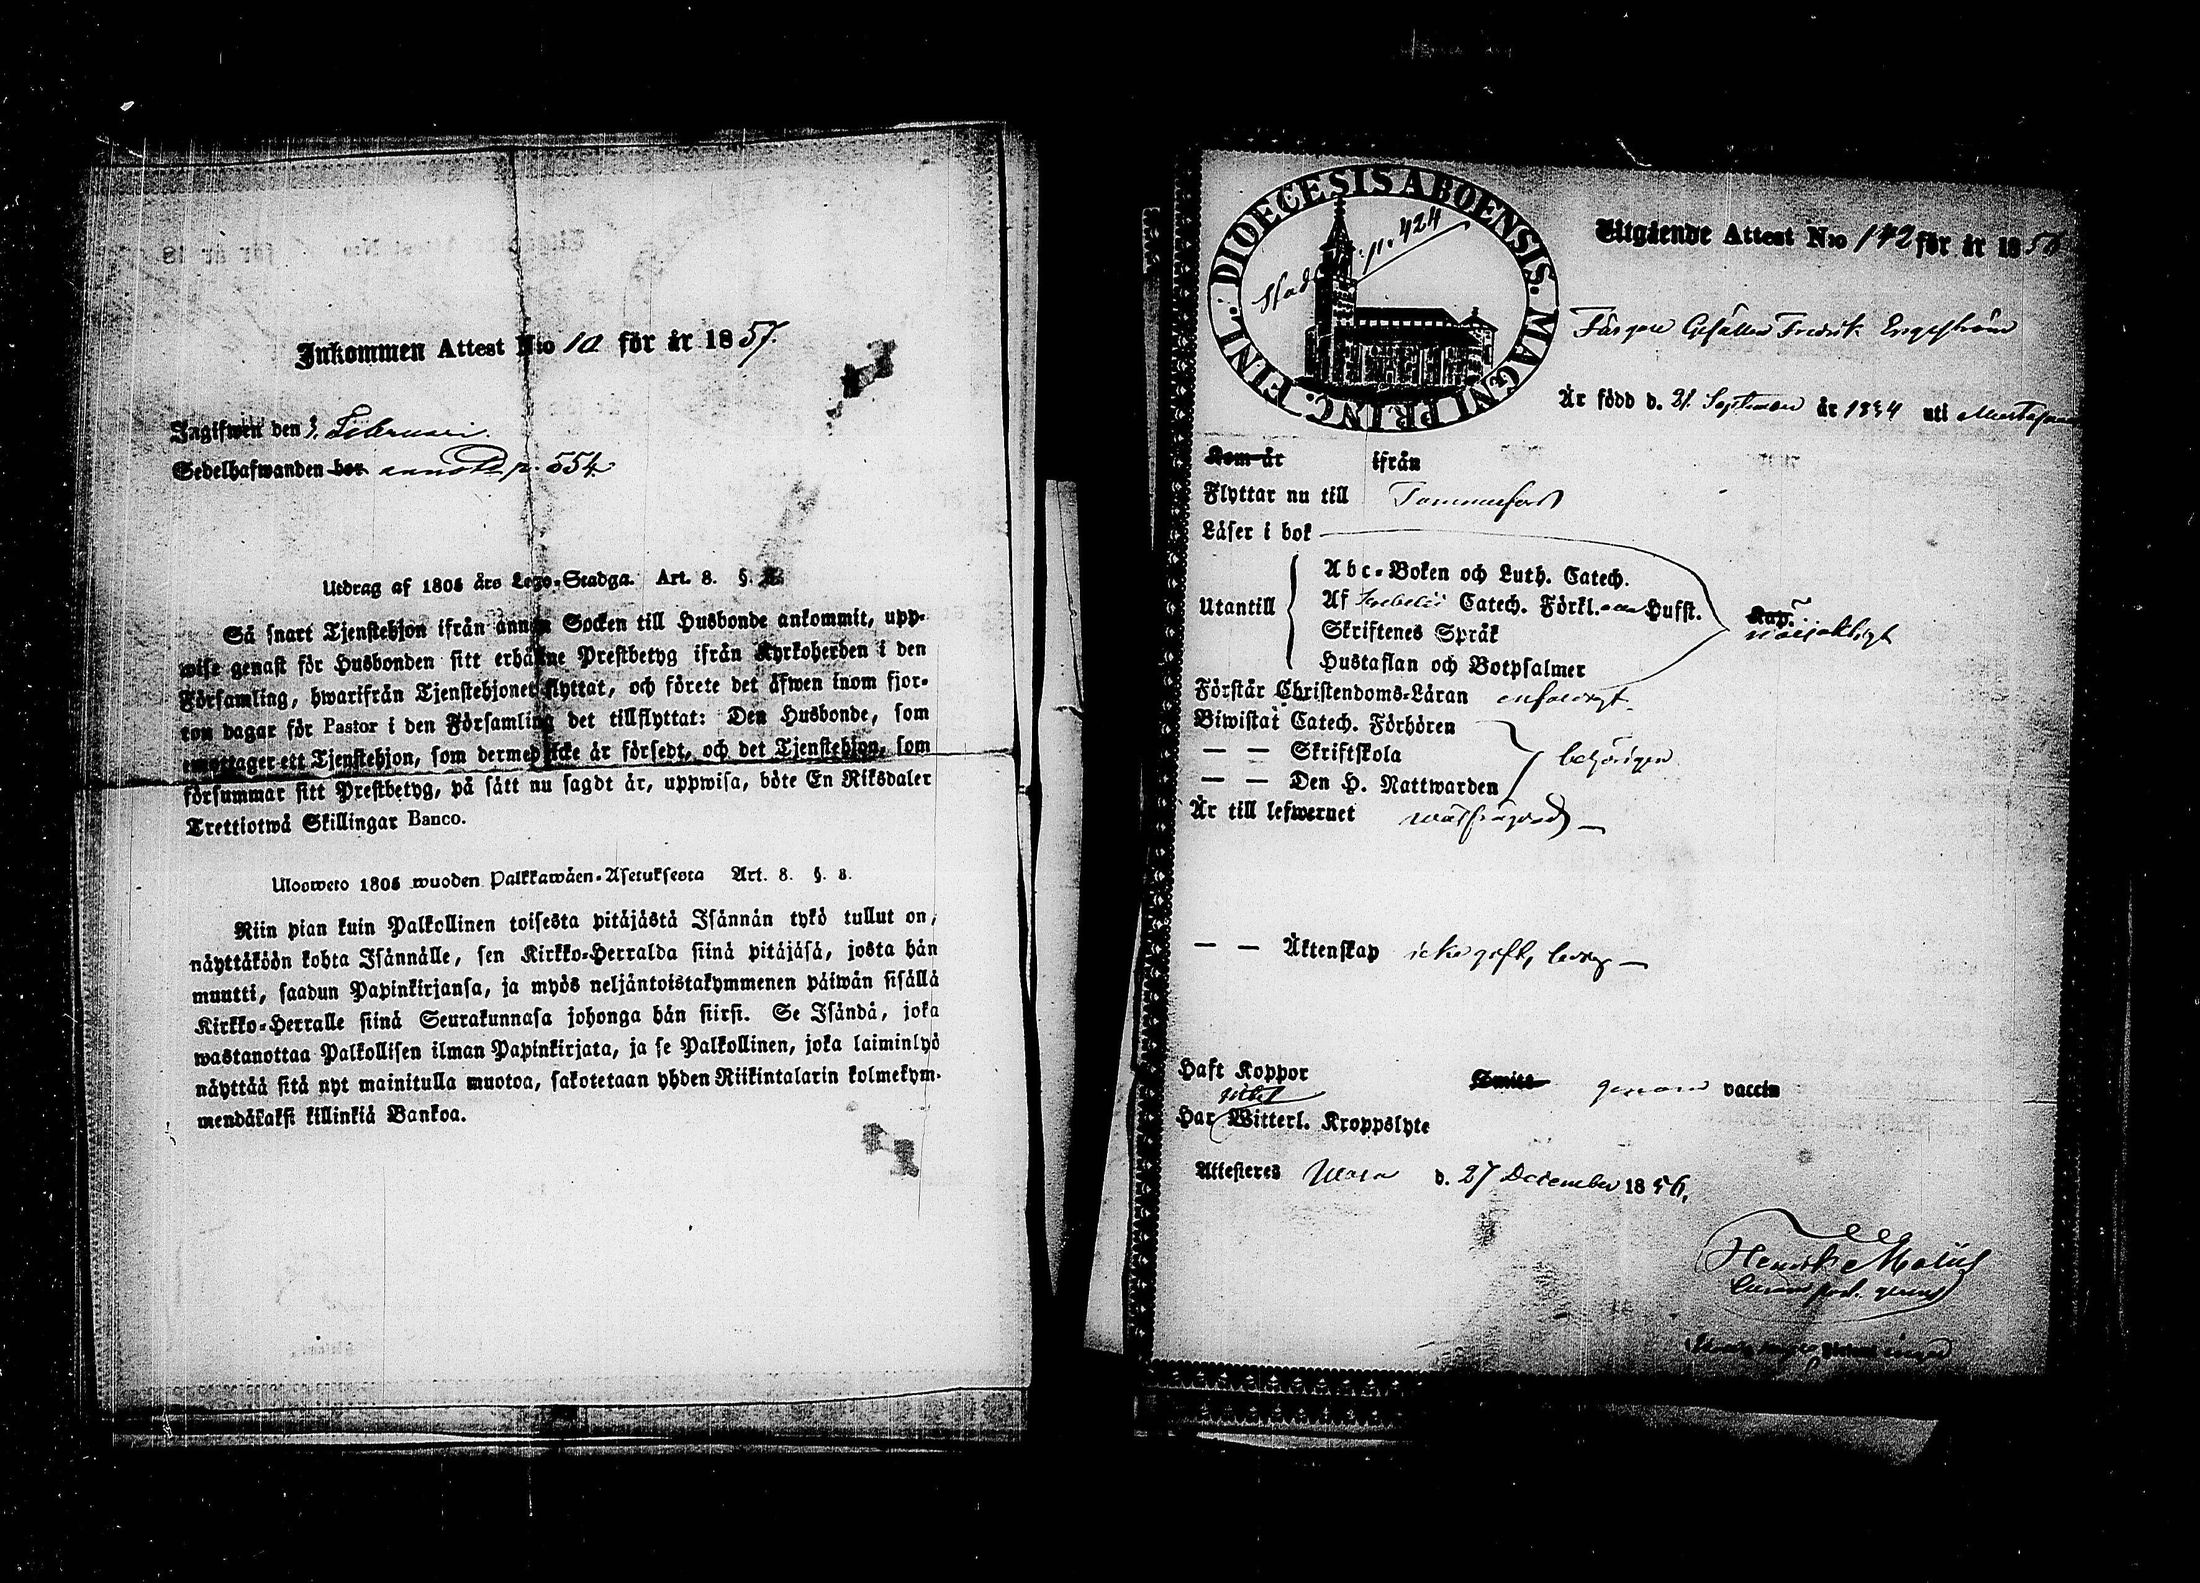 Inkommen Attest N:o 10 för år 1857.
Ingifwen den 3. Februari
Sedelhafwanden bor annot. p. 554
Utdrag af 1805 års Lego-Stadga. Art. 8. §.
Så snart Tjenstehjon ifrån annan Socken till Husbonde ankommit, upp-
wise genast för Husbonden sitt erhållne Prestbetyg ifrån Kyrkoherden i den
Församling, hwarifrån Tjenstehjonet flyttat, och förete det äfwen inom fjor-
ton dagar för Pastor i den Församling det tillflyttat: Den Husbonde, som
emottager ett Tjenstehjon, som dermed icke är försedt, och det Tjenstehjon, som
försummar sitt Prestbetyg, på sätt nu sagdt är, uppwisa, böte En Riksdaler
Trettiotwå Skillingar Banco.
Ulosweto 1805 wuoden Palkkawäen-Asetuksesta Art. 8. §. 8.
Niin pian kuin Palkollinen toisesta pitäjästä Isännän tykö tullut on,
näyttäköön kohta Isännälle, sen Kirkko-Herralda siinä pitäjäsä, josta hän
muutti, saadun Papinkirjansa, ja myös neljäntoistakymmenen päiwän sisällä
Kirkko-Herralle siinä Seurakunnasa johonga hän siirsi. Se Isändä, joka
wastanottaa Palkollisen ilman Papinkirjata, ja se Palkollinen, joka laiminlyö
näyttää sitä nyt mainitulla muotoa, sakotetaan yhden Riikintalarin kolmekym-
mendäkaksi killinkiä Bankoa.
DIOECESIS ABOENSIS. MAGNI PRINC. FINL.
p. 424
Utgående Attest N:o 142 för år 1856
Färgare Gesällen Fredrik Engström
Är född d. 21 September år 1834 uti
Kom år ifrån
Flyttar nu till Tammerfors
Läser i bok
Utantill
Abc-Boken och Luth. Catech.
Af Svebelii Catech. Förkl. Hufst.
Skriftenes Språk
Hustaflan och Botpsalmer
Förstår Christendoms-Läran enfaldigt
Biwistat Catech. Förhören
— — Skriftskola
— — Den H. Nattwarden
behörigen
Är till lefwernet wälfrägdad —
— — Äktenskap icke gift, ledig —
Haft Koppor Smitt genom vaccin
Har intet Witterl. Kroppslyte
Attesteres d. 27 December 1856.